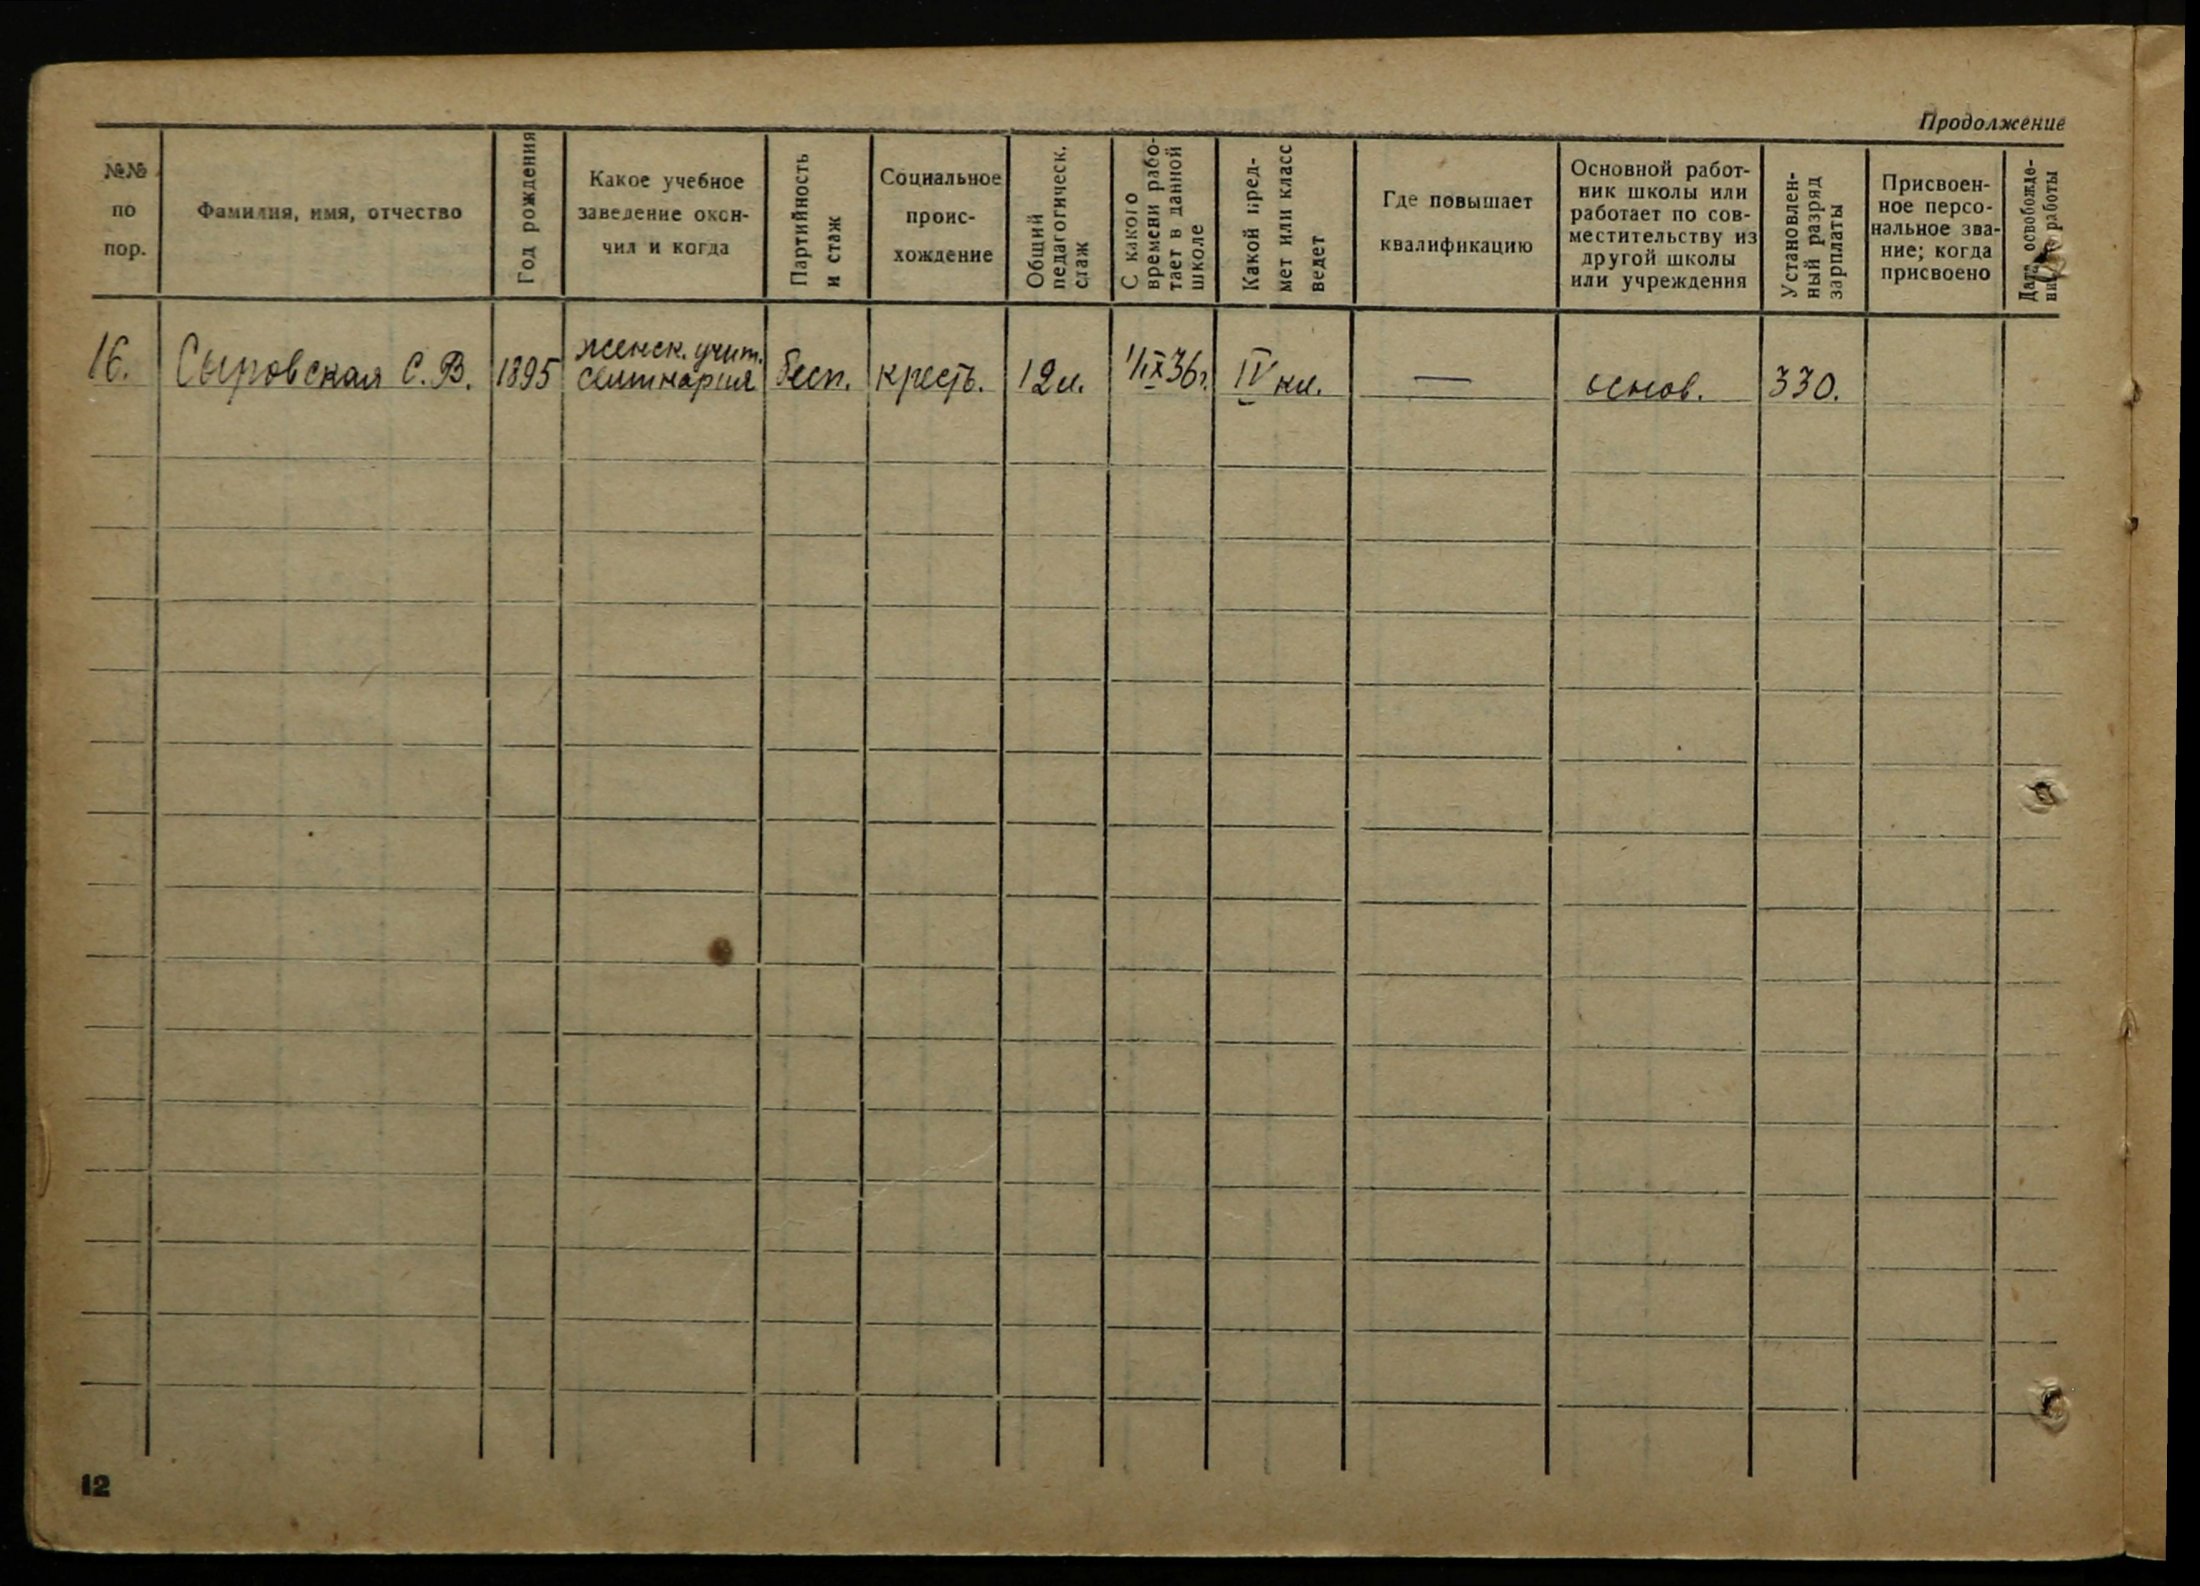 Продолжение
№№
по
пор.
Фамилия, имя, отчество
Год рождения
Какое учебное
заведение окон-
чил и когда
Партийность
и стаж
Социальное
проис-
хождение
Общий
педагогическ.
стаж
С какого
времени рабо-
тает в данной
школе
Какой пред-
мет или класс
ведет
Где повышает
квалификацию
Основной работ-
ник школы или
работает по сов-
местительству из
другой школы
или учреждения
Установлен-
ный разряд
зарплаты
Присвоен-
ное персо-
нальное зва-
ние; когда
присвоено
Дата освобожде-
работы
16.
Сыровская С. В.
1895
женск. учит.
семинария
бесп.
кресть.
12 л.
1/IX 36 г.
IV кл.
—
основ.
330.
12